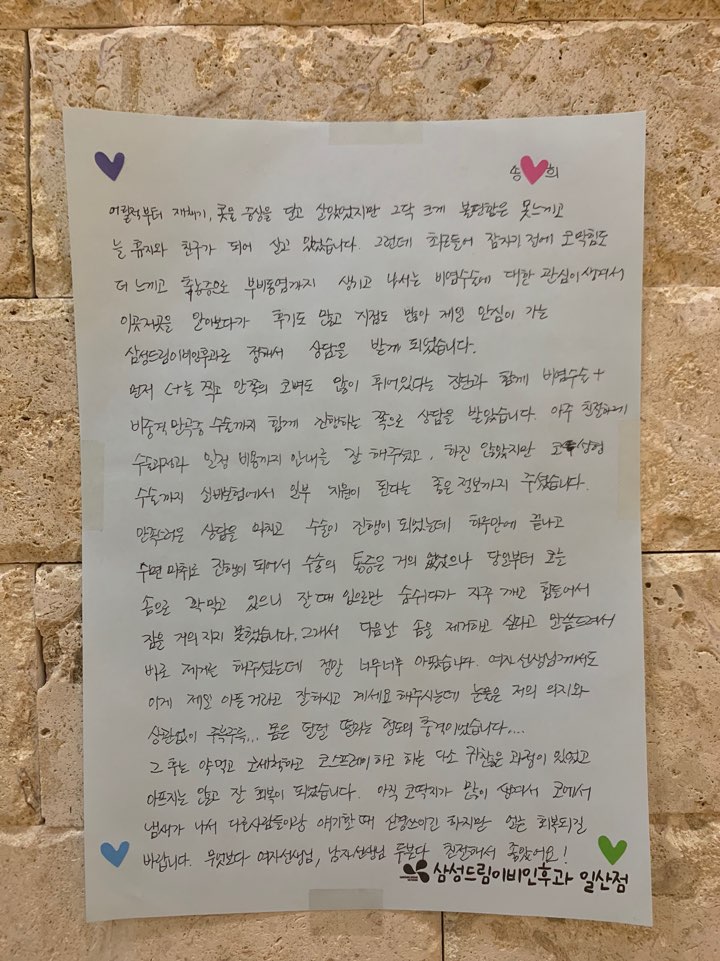 송 희
어릴적부터 재채기, 콧물 증상을 달고 살았었지만 그닥 크게 불편함은 못느끼고
늘 휴지와 친구가 되어 살고 있었습니다. 그런데 최근들어 잠자기 전에 코막힘도
더 느끼고 축농증으로 부비동염까지 생기고 나서는 비염수술에 대한 관심이 생겨서
이곳저곳을 알아보다가 후기도 많고 지점도 많아 제일 안심이 가는
삼성드림이비인후과로 정해서 상담을 받게 되었습니다.
먼저 CT를 찍고 안쪽의 코벽도 많이 휘어있다는 진단과 함께 비염수술+
비중격만곡증 수술까지 함께 진행하는 쪽으로 상담을 받았습니다. 아주 친절하게
수술과정과 일정 비용까지 안내를 잘 해주셨고, 하진 않았지만 코성형
수술까지 실비보험에서 일부 지원이 된다는 좋은 정보까지 주셨습니다.
만족스러운 상담을 마치고 수술이 진행이 되었는데 하루만에 끝나고
수면 마취로 진행이 되어서 수술의 통증은 거의 없었으나 당일부터 코는
솜으로 꽉 막고 있으니 잘 때 입으로만 숨쉬다가 자꾸 깨고 힘들어서
잠을 거의 자지 못했습니다. 그래서 다음날 솜을 제거하고 싶다고 말씀드려서
바로 제거는 해주셨는데 정말 너무너무 아팠습니다. 여자선생님께서도
이게 제일 아플거라고 잘하시고 계세요 해주시는데 눈물은 저의 의지와
상관없이 주륵주륵... 몸은 덜덜 떨리는 정도의 충격이었습니다....
그 후는 약먹고 코세척하고 코스프레이하고 하는 다소 귀찮은 과정이 있었고
아프지는 않고 잘 회복이 되었습니다. 아직 코딱지가 많이 생겨서 코에서
냄새가 나서 다른사람들이랑 얘기할 때 신경쓰이긴 하지만 얼른 회복되길
바랍니다. 무엇보다 여자선생님, 남자선생님 두분다 친절해서 좋았어요!
삼성드림이비인후과 일산점